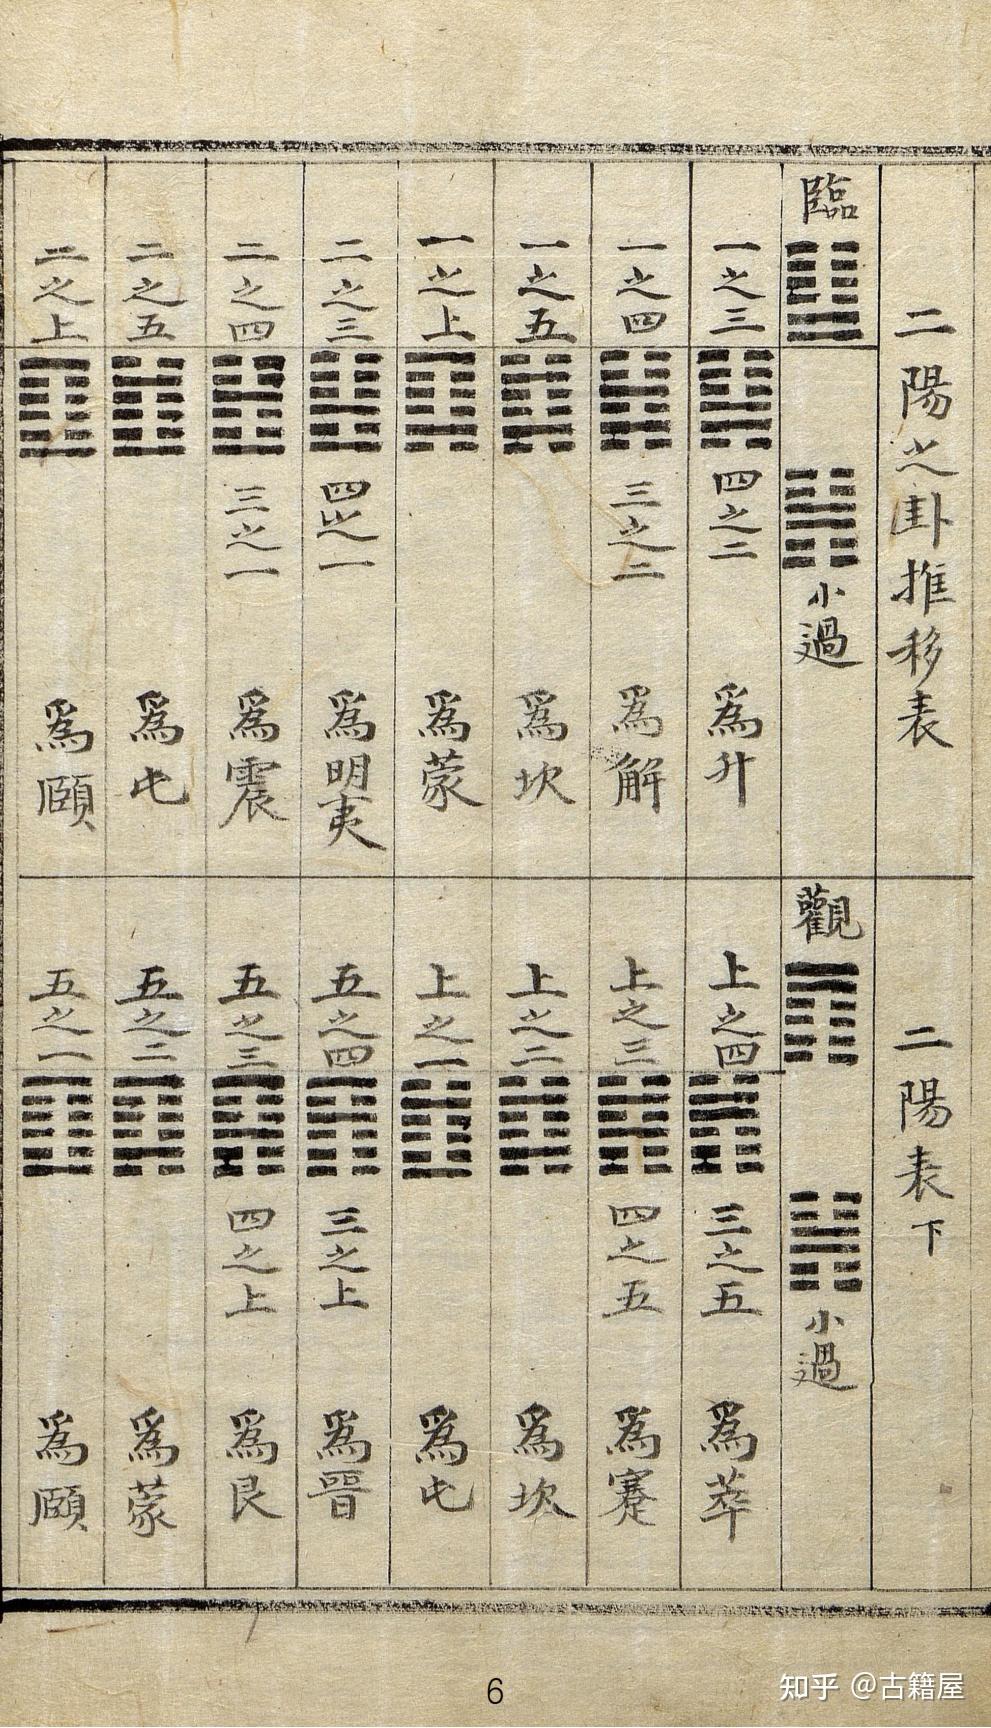 二陽之卦推移表
臨
小過
一之三 四之二 為升
一之四 三之二 為解
一之五 為坎
一之上 為蒙
二之三 四之一 為明夷
二之四 三之一 為震
二之五 為屯
二之上 為頤
二陽表下
觀
小過
上之四 三之五 為萃
上之三 四之五 為蹇
上之二 為坎
上之一 為屯
五之四 三之上 為晉
五之三 四之上 為艮
五之二 為蒙
五之一 為頤
6
知乎 @古籍屋